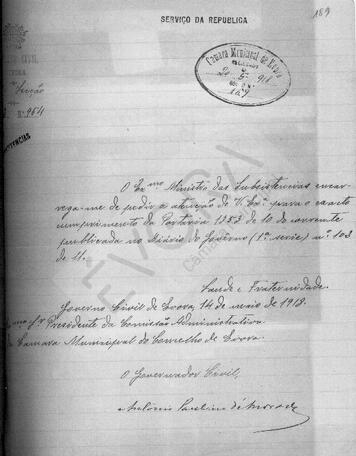 SERVIÇO DA REPUBLICA
189
CIVIL
Secção
Nº 264
Camara Municipal de Evora
20 5 918
169
O Exmo Ministro das Subsistencias encar-
rega-me de pedir a atenção de V. Exª para o exacto
cumprimento da Portaria 1353 de 10 do corrente
publicada no Diário do Govêrno (1ª serie) nº 103
de 11.
Saude e Fraternidade.
Governo Civil de Evora, 14 de maio de 1918.
Exmo Snr Presidente da Comissão Administrativa
da Camara Municipal do Concelho de Evora.
O Governador Civil,
António Paulino d'Andrade